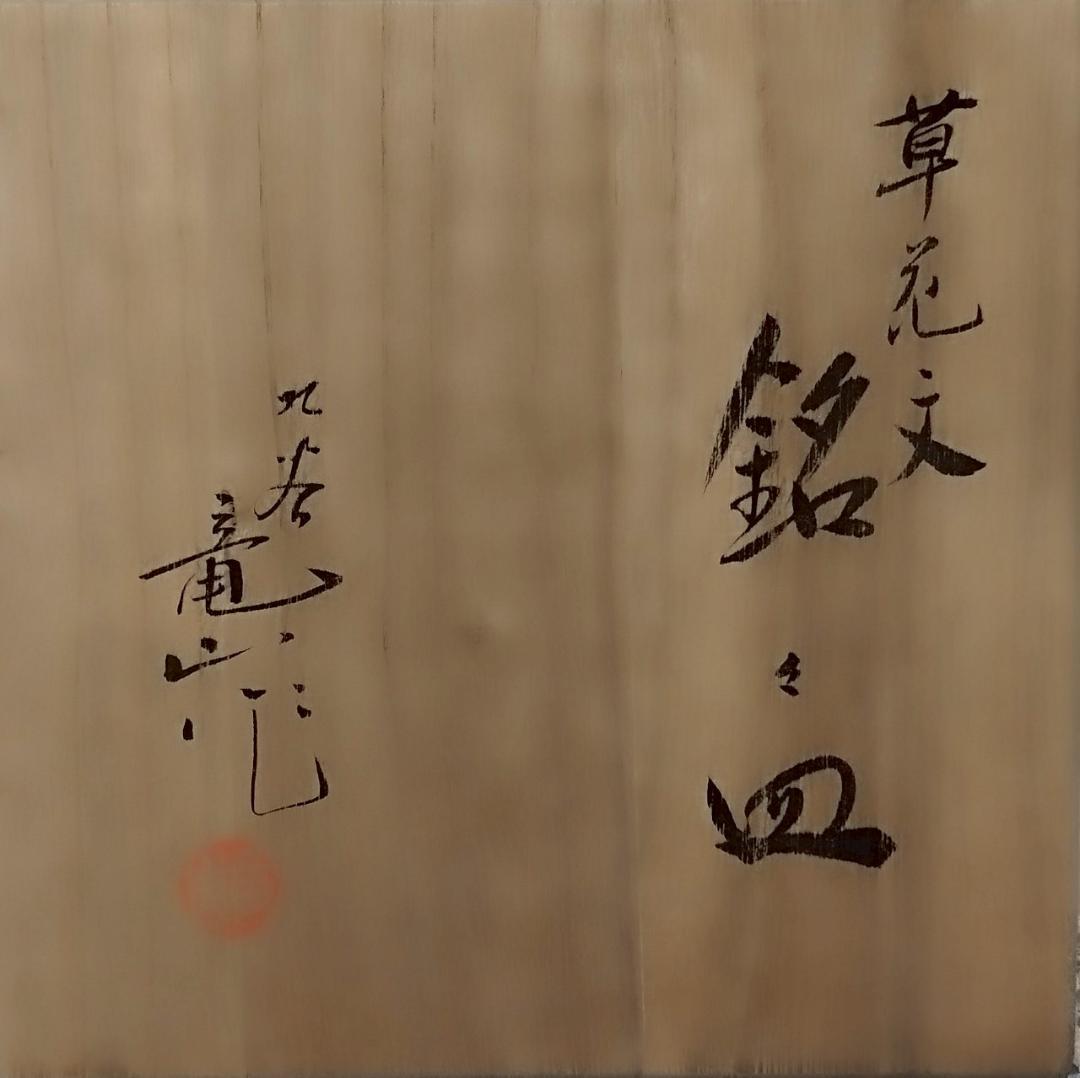 草花文
銘々皿
九谷
竜山作